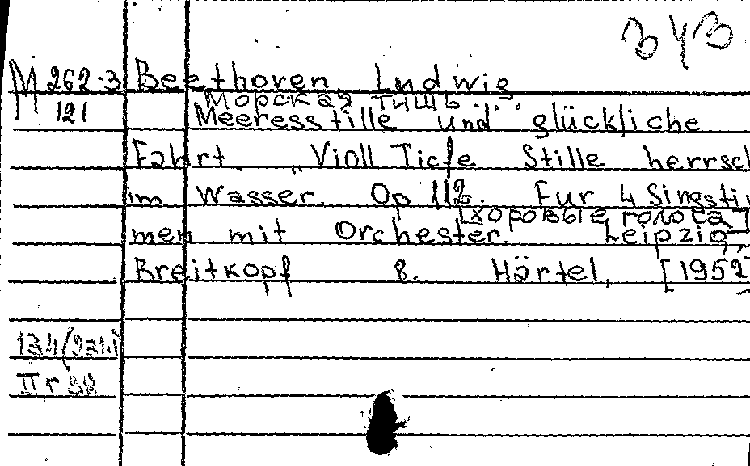 343
M 262-3 Beethoven Ludwig
121 Морская тишь...
Meeresstille und glückliche
Fahrt. "Violl Tiefe Stille herrsc
im Wasser. Op 112. Fur 4 Singsti
[хоровые голоса]
men mit Orchester. Leipzig,
Breitkopf & Härtel, [1952
II г